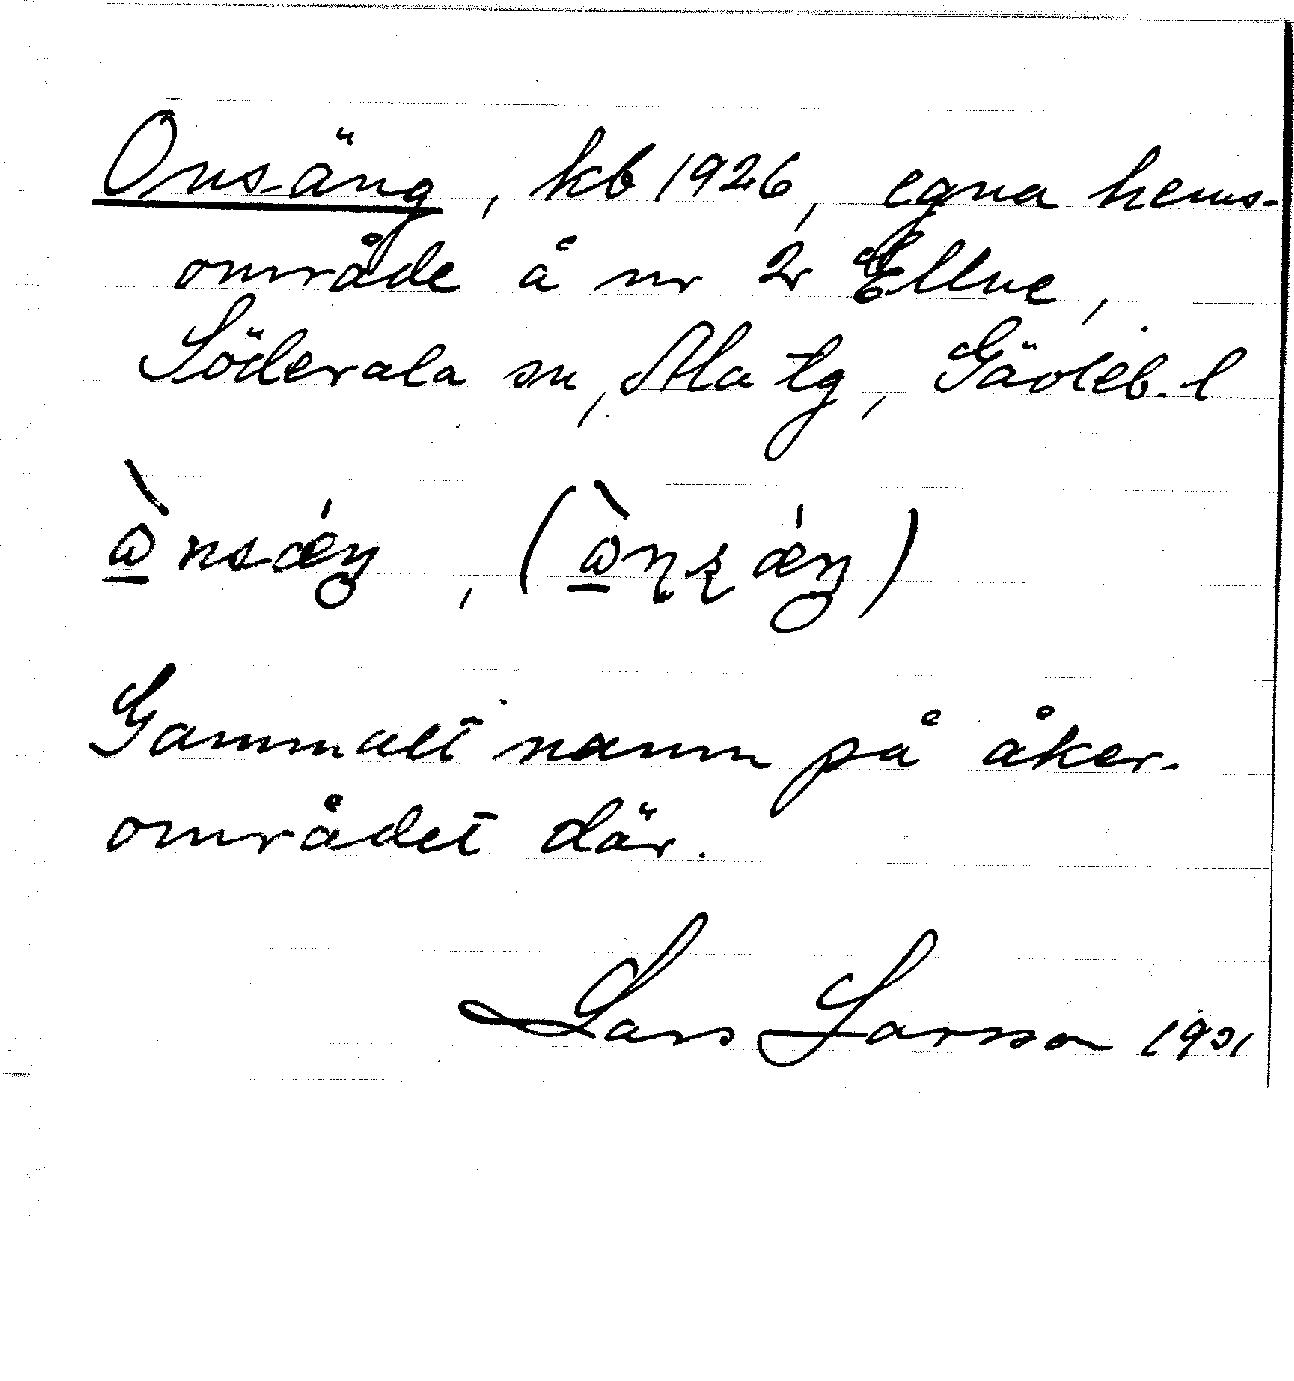 Onsäng, kb 1926, egna hems-
område å nr 2 Ellne,
Söderala sn, Ala tg, Gävleb. l
Gammalt namn på åker-
området där.
Lars Larsson 1931